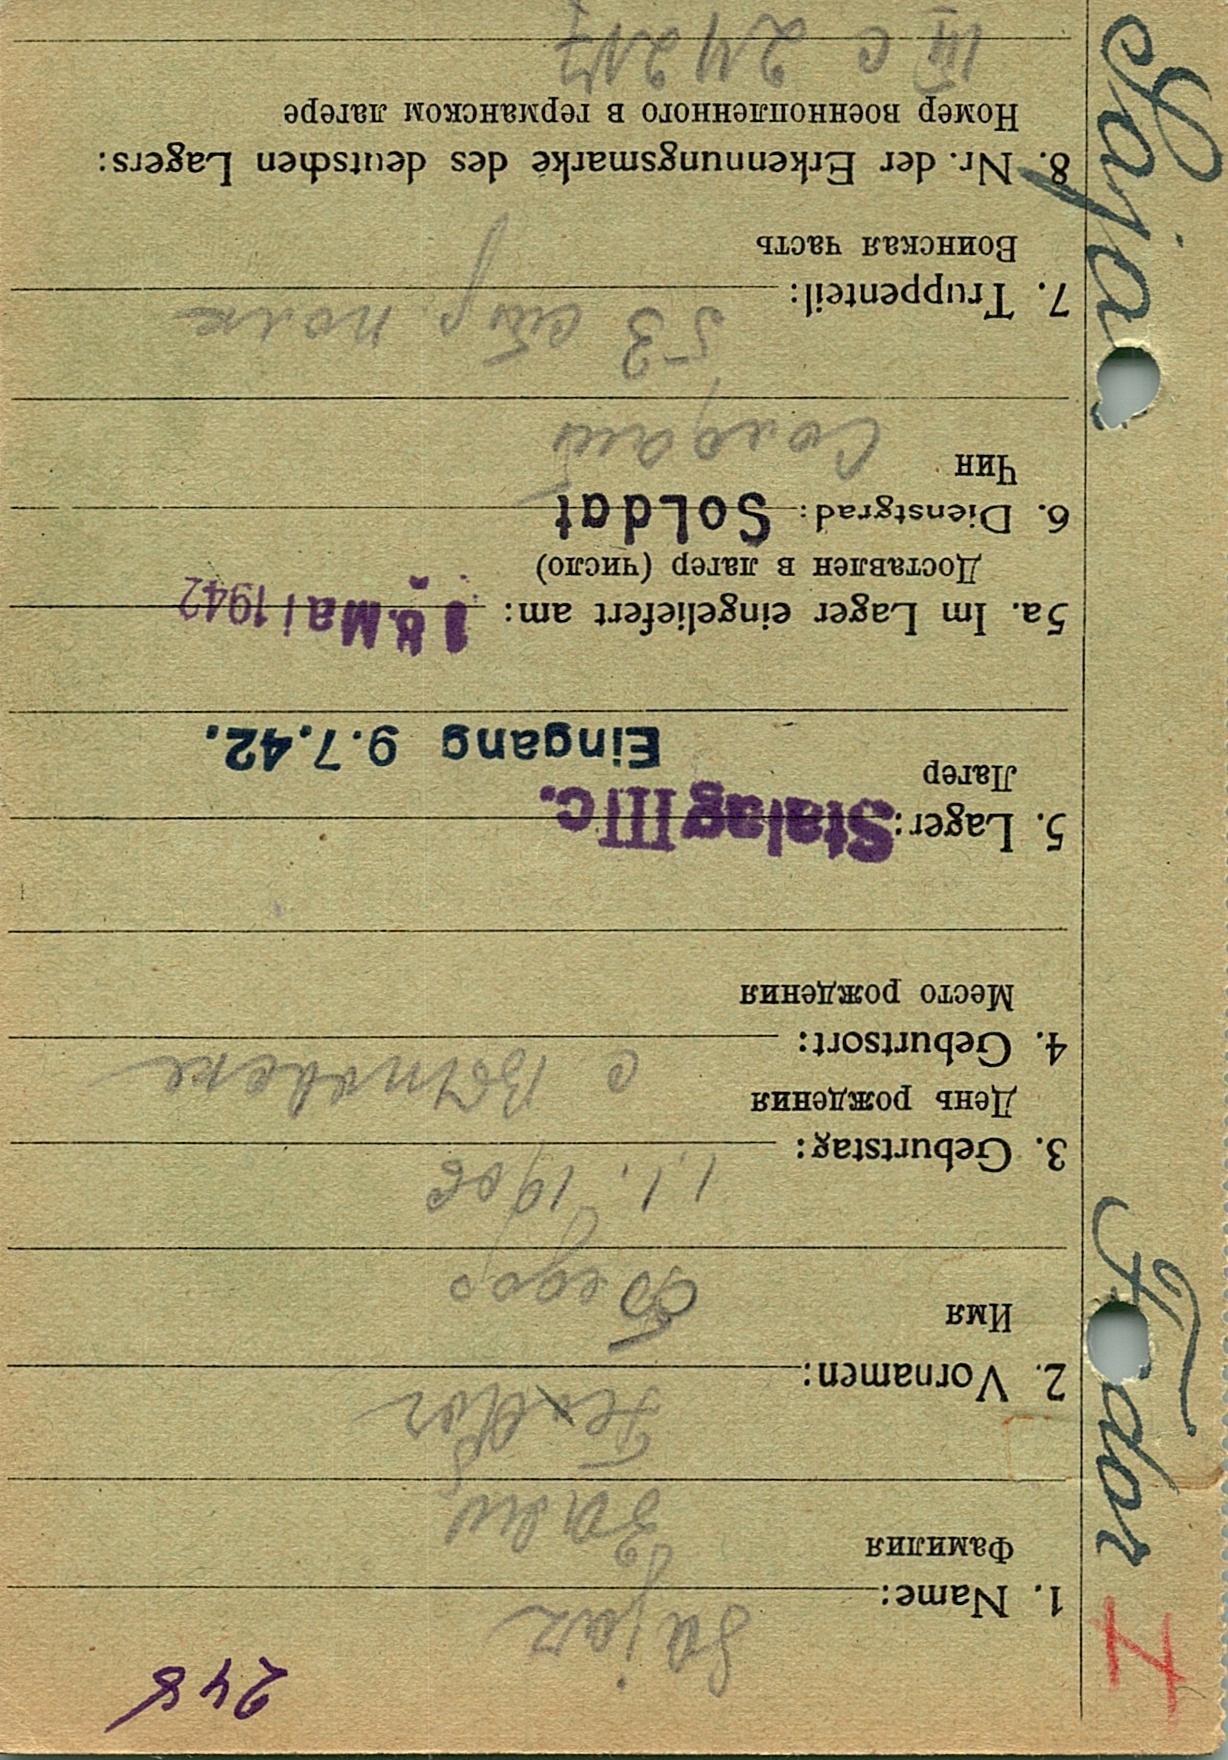 248
Sajaz
1. Name:
Фамилия
Заяц
Feodor
2. Vornamen:
Имя
Федор
1.1.1906
3. Geburtstag:
День рождения
4. Geburtsort:
Место рождения
5. Lager: Stalag III c.
Лагер
Eingang 9.7.42.
5a. Im Lager eingeliefert am: 18. Mai 1942
Доставлен в лагер (число)
6. Dienstgrad: Soldat
Чин
Солдат
53 стр полк
7. Truppenteil:
Воинская часть
8. Nr. der Erkennungsmarke des deutschen Lagers:
Номер военнопленного в германском лагере
III C 24217
Sajaz Fedor I